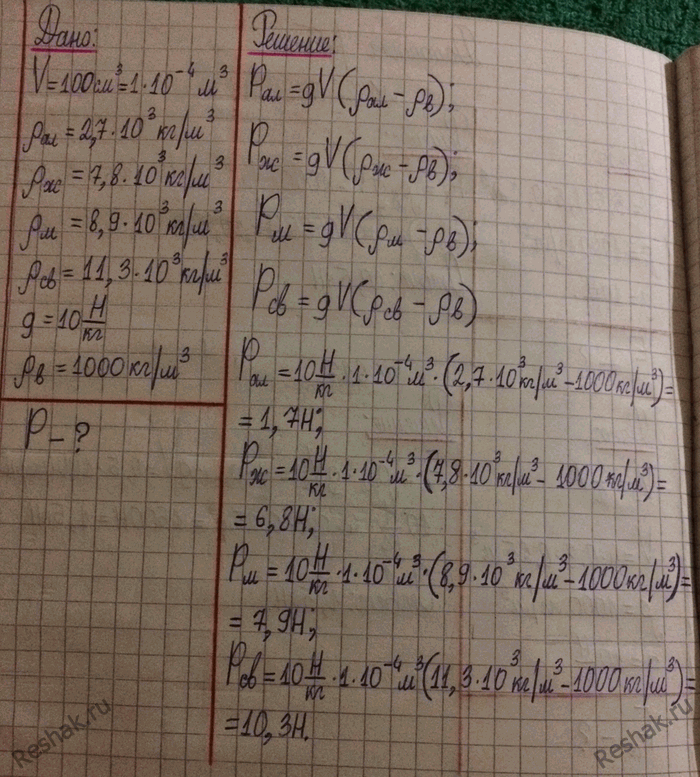 Дано:
V=100см³=1·10⁻⁴ м³
ρал=2,7·10³ кг/м³
ρж=7,8·10³ кг/м³
ρм=8,9·10³ кг/м³
ρсв=11,3·10³ кг/м³
g=10 Н/кг
ρв=1000 кг/м³
P-?
Решение:
Pал=gV(ρал-ρв);
Pж=gV(ρж-ρв);
Pм=gV(ρм-ρв);
Pсв=gV(ρсв-ρв)
Pал=10 Н/кг·1·10⁻⁴ м³·(2,7·10³ кг/м³-1000 кг/м³)=
=1,7Н;
Pж=10 Н/кг·1·10⁻⁴ м³·(7,8·10³ кг/м³-1000 кг/м³)=
=6,8Н;
Pм=10 Н/кг·1·10⁻⁴ м³·(8,9·10³ кг/м³-1000 кг/м³)=
=7,9Н;
Pсв=10 Н/кг·1·10⁻⁴ м³(11,3·10³ кг/м³-1000 кг/м³)=
=10,3Н.
Reshak.ru
Reshak.ru